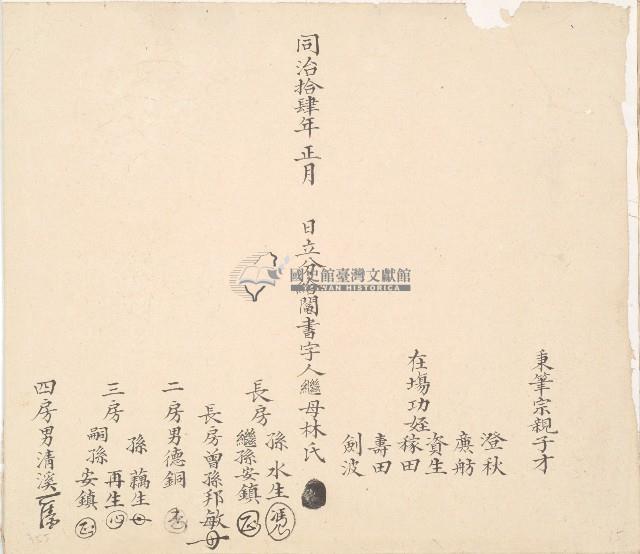 秉筆宗親子才
澄秋
廉舫
在場功姪資生
稼田
壽田
劍波
同治拾肆年正月 日立分鬮書字人繼母林氏
國史館臺灣文獻館
TAIWAN HISTORICA
長房孫水生
繼孫安鎮
長房曾孫邦敏
二房男德銅
三房孫藕生
嗣孫再生
安鎮
四房男清溪